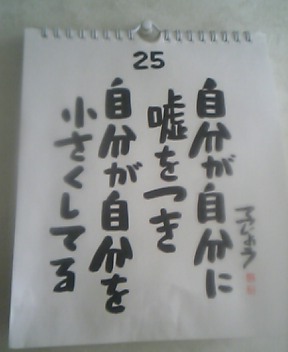 25
自分が自分に
嘘をつき
自分が自分を
小さくしてる